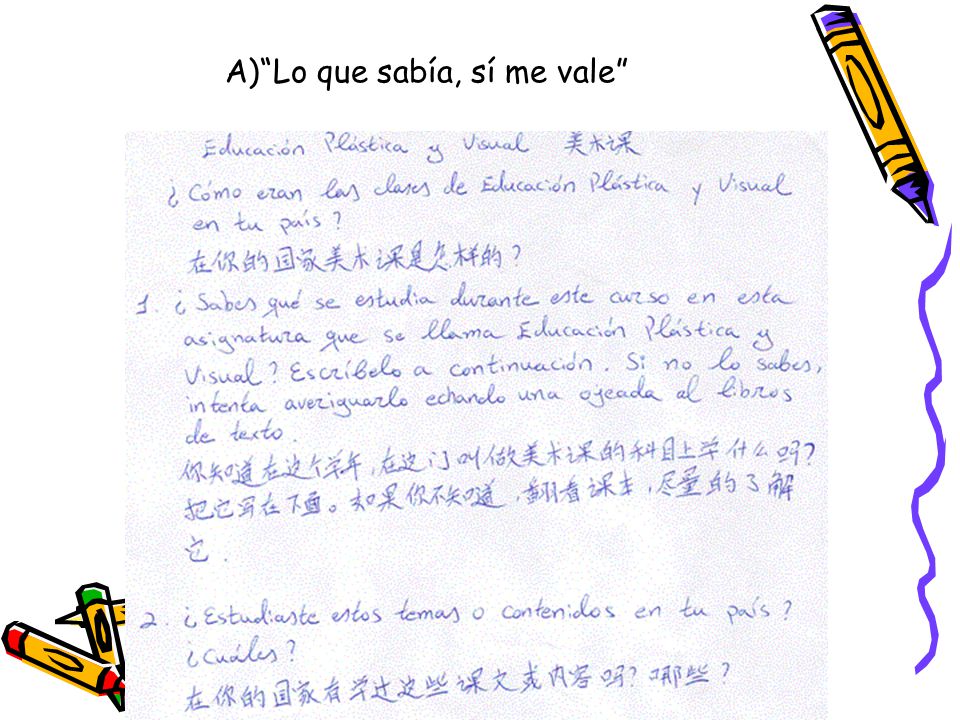 A)“Lo que sabía, sí me vale”
Educación Plástica y Visual 美术课
¿Cómo eran las clases de Educación Plástica y Visual
en tu país?
在你的国家美术课是怎样的?
1. ¿Sabes qué se estudia durante este curso en esta
asignatura que se llama Educación Plástica y
Visual? Escríbelo a continuación. Si no lo sabes,
intenta averiguarlo echando una ojeada al libros
de texto.
你知道在这个学年,在这门叫做美术课的科目上学什么吗?
把它写在下面。如果你不知道,翻看课本,尽量的了解
它.
2. ¿Estudiaste estos temas o contenidos en tu país?
¿Cuáles?
在你的国家有学过这些课文或内容吗?哪些?